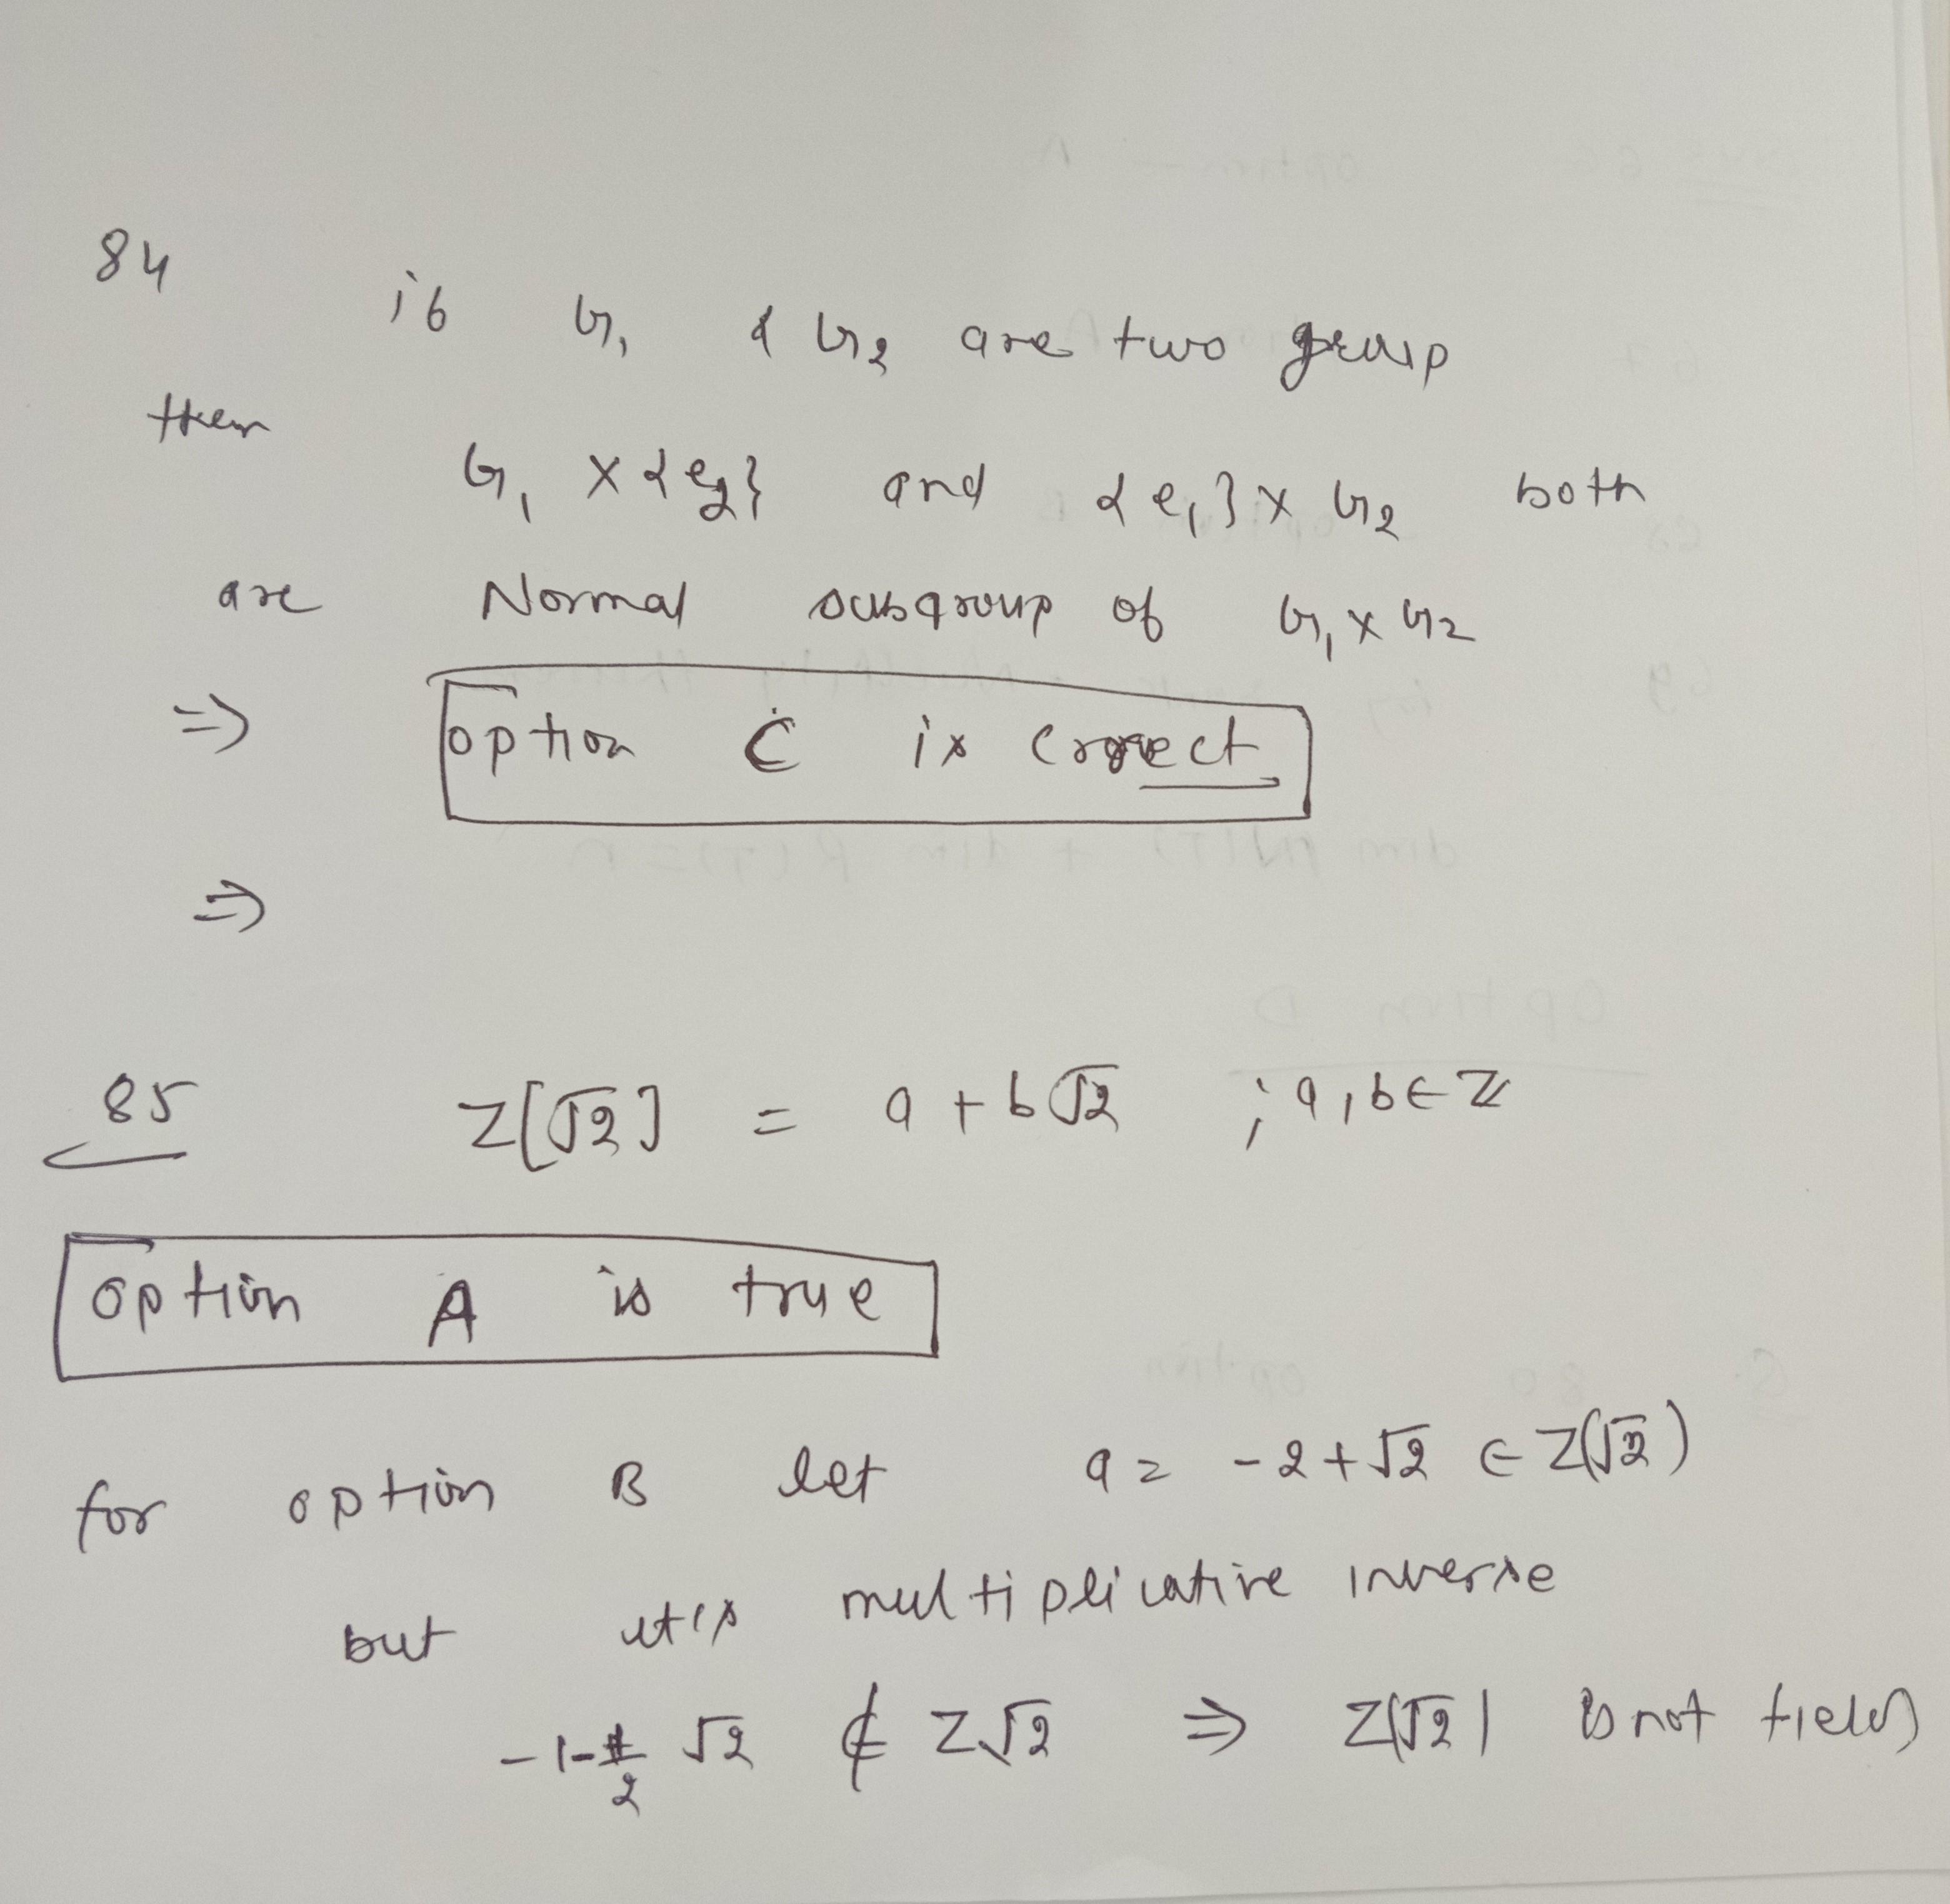 84
if G₁ & G₂ are two group
then
G₁ × {e₂} and {e₁} × G₂ both
are Normal subgroup of G₁ × G₂
⇒ option C is correct
⇒
85 Z[√2] = a + b√2 ; a, b ∈ Z
option A is true
for option B let a = -2 + √2 ∈ Z(√2)
but it's multiplicative inverse
-1 - 1/2 √2 ∉ Z√2 ⇒ Z(√2) is not field